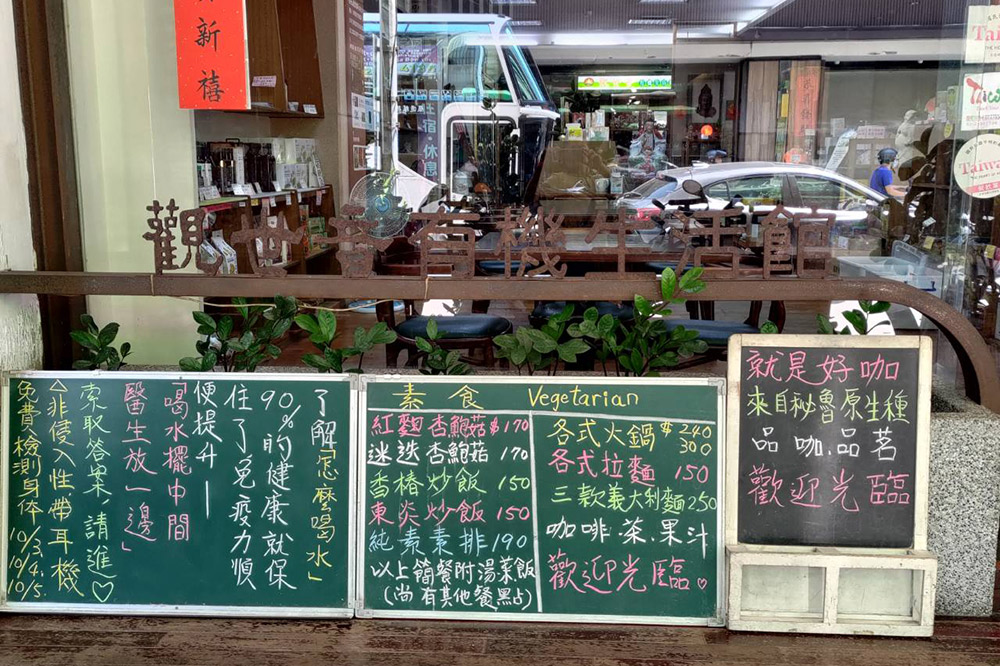 新禧
觀世音有機生活館
了解「怎麼喝水」
90%的健康就保
住了免疫力順
便提升—
「喝水擺中間
醫生放一邊」
索取答案,請進♡
<非侵入性.帶耳機
免費檢測身体10/3.10/4.10/5.
素食 Vegetarian
紅麴杏鮑菇$170
迷迭杏鮑菇 170
香椿炒飯 150
東炎炒飯 150
純素素排190
以上簡餐附湯菜飯
(尚有其他餐點)
各式火鍋$240
300
各式拉麵 150
三款義大利麵250
咖啡.茶.果汁
歡迎光臨♡
就是好咖
來自秘魯原生種
品咖.品茗
歡迎光臨